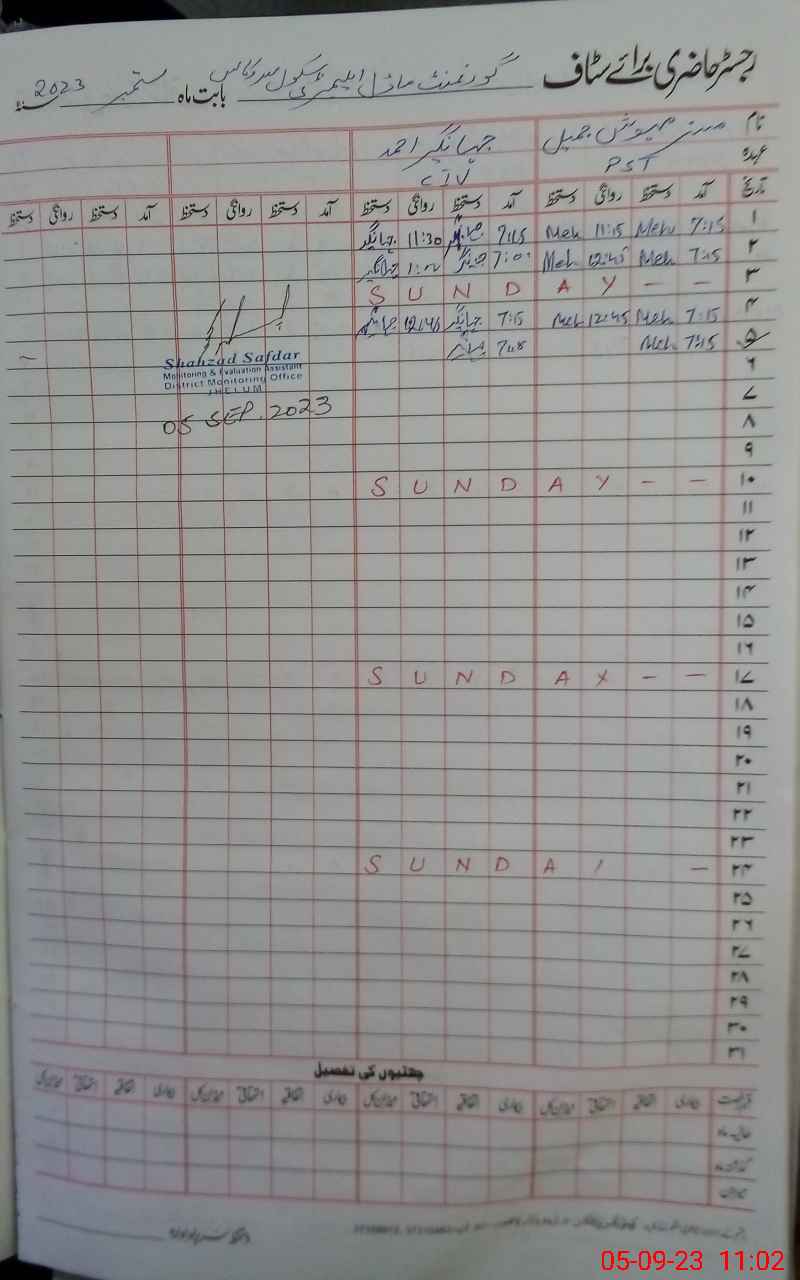 رجسٹر حاضری برائے سٹاف گورنمنٹ ماڈل ایلیمنٹری سکول بابت ماہ ستمبر 2023
نام مسز مہوش جمیل جہانگیر احمد
عہدہ PST CIV
تاریخ آمد دستخط روانگی دستخط آمد دستخط روانگی دستخط آمد دستخط روانگی دستخط آمد دستخط روانگی دستخط
۱ 7:15 Meh 11:15 Meh 7:15 جہانگیر 11:30 جہانگیر
۲ 7:15 Meh 12:45 Meh 7:00 جہانگیر 1:00 جہانگیر
۳ S U N D A Y - -
۴ 7:15 Meh 12:45 Meh 7:15 جہانگیر 12:46 جہانگیر
۵ 7:15 Meh 7:18 جہانگیر
۶
Shahzad Safdar
Monitoring & Evaluation Assistant
District Monitoring Office
JHELUM
۷
05 SEP. 2023
۸
۹
۱۰ S U N D A Y - -
۱۱
۱۲
۱۳
۱۴
۱۵
۱۶
۱۷ S U N D A Y - -
۱۸
۱۹
۲۰
۲۱
۲۲
۲۳
۲۴ S U N D A / -
۲۵
۲۶
۲۷
۲۸
۲۹
۳۰
۳۱
چھٹیوں کی تفصیل
05-09-23 11:02